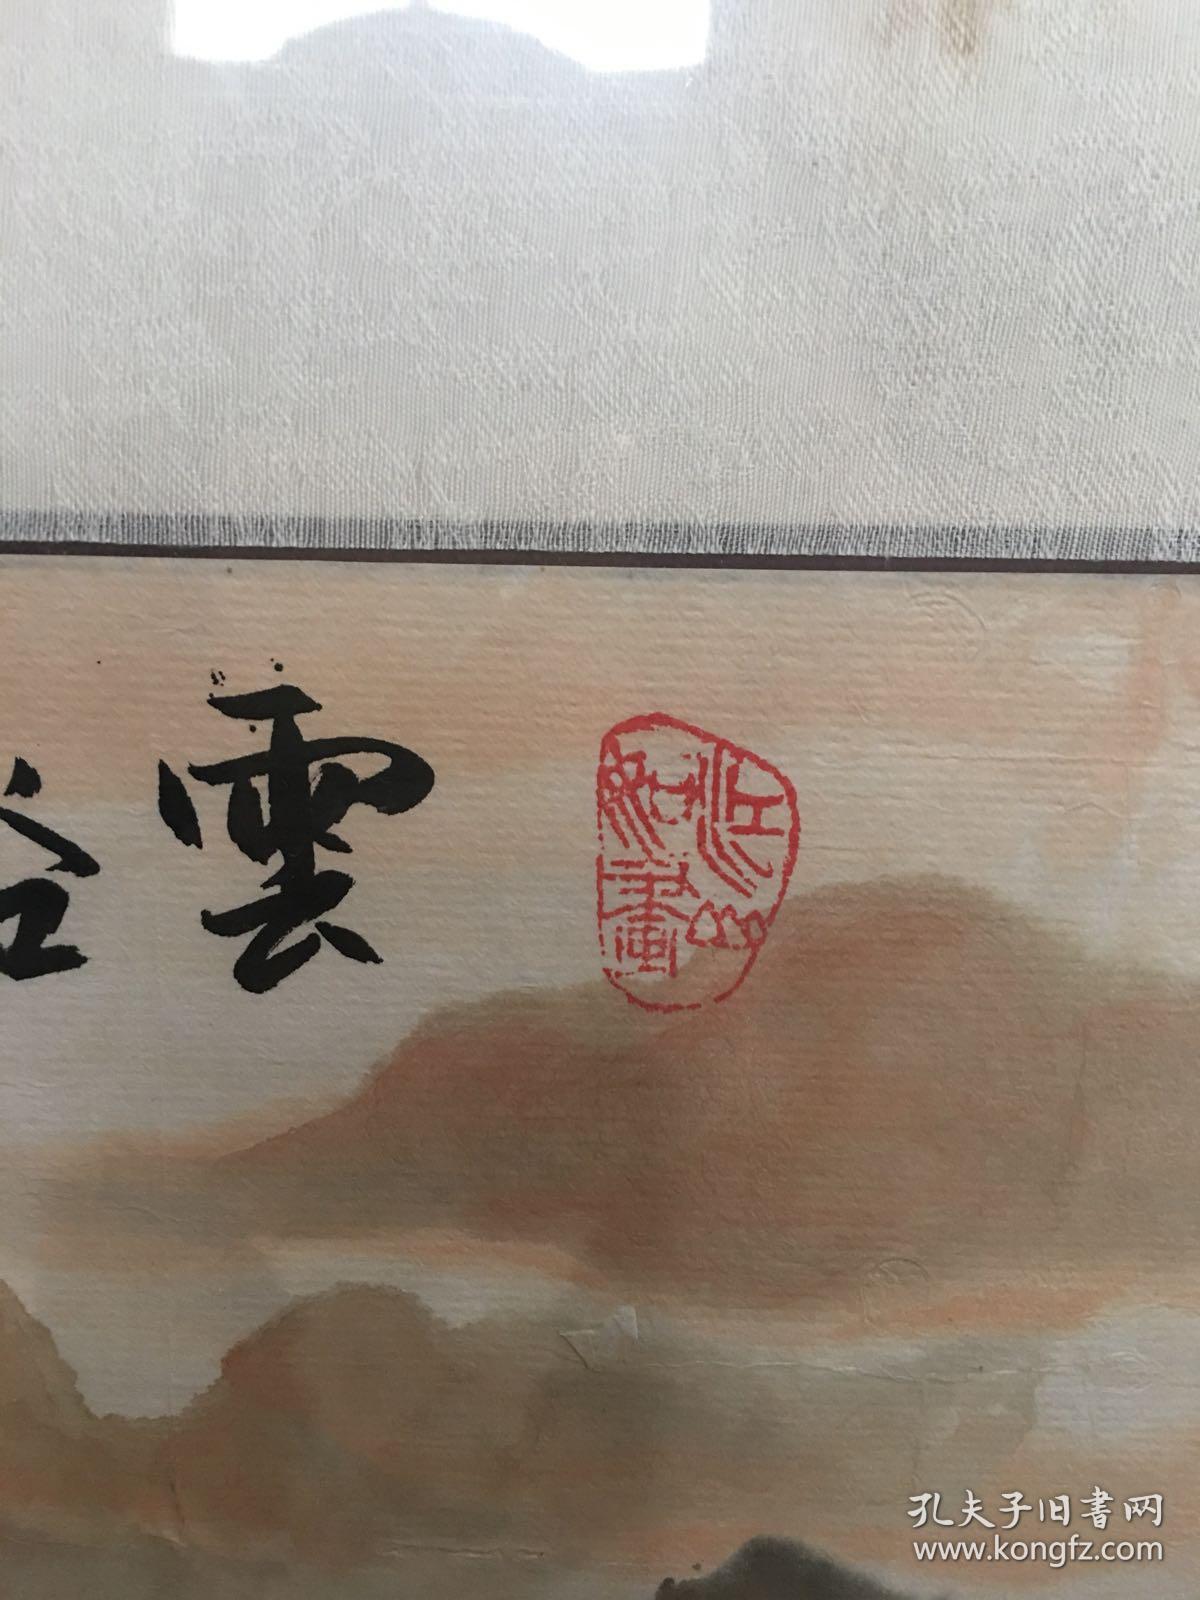 江山
如畫
雲
孔夫子旧書网
www.kongfz.com